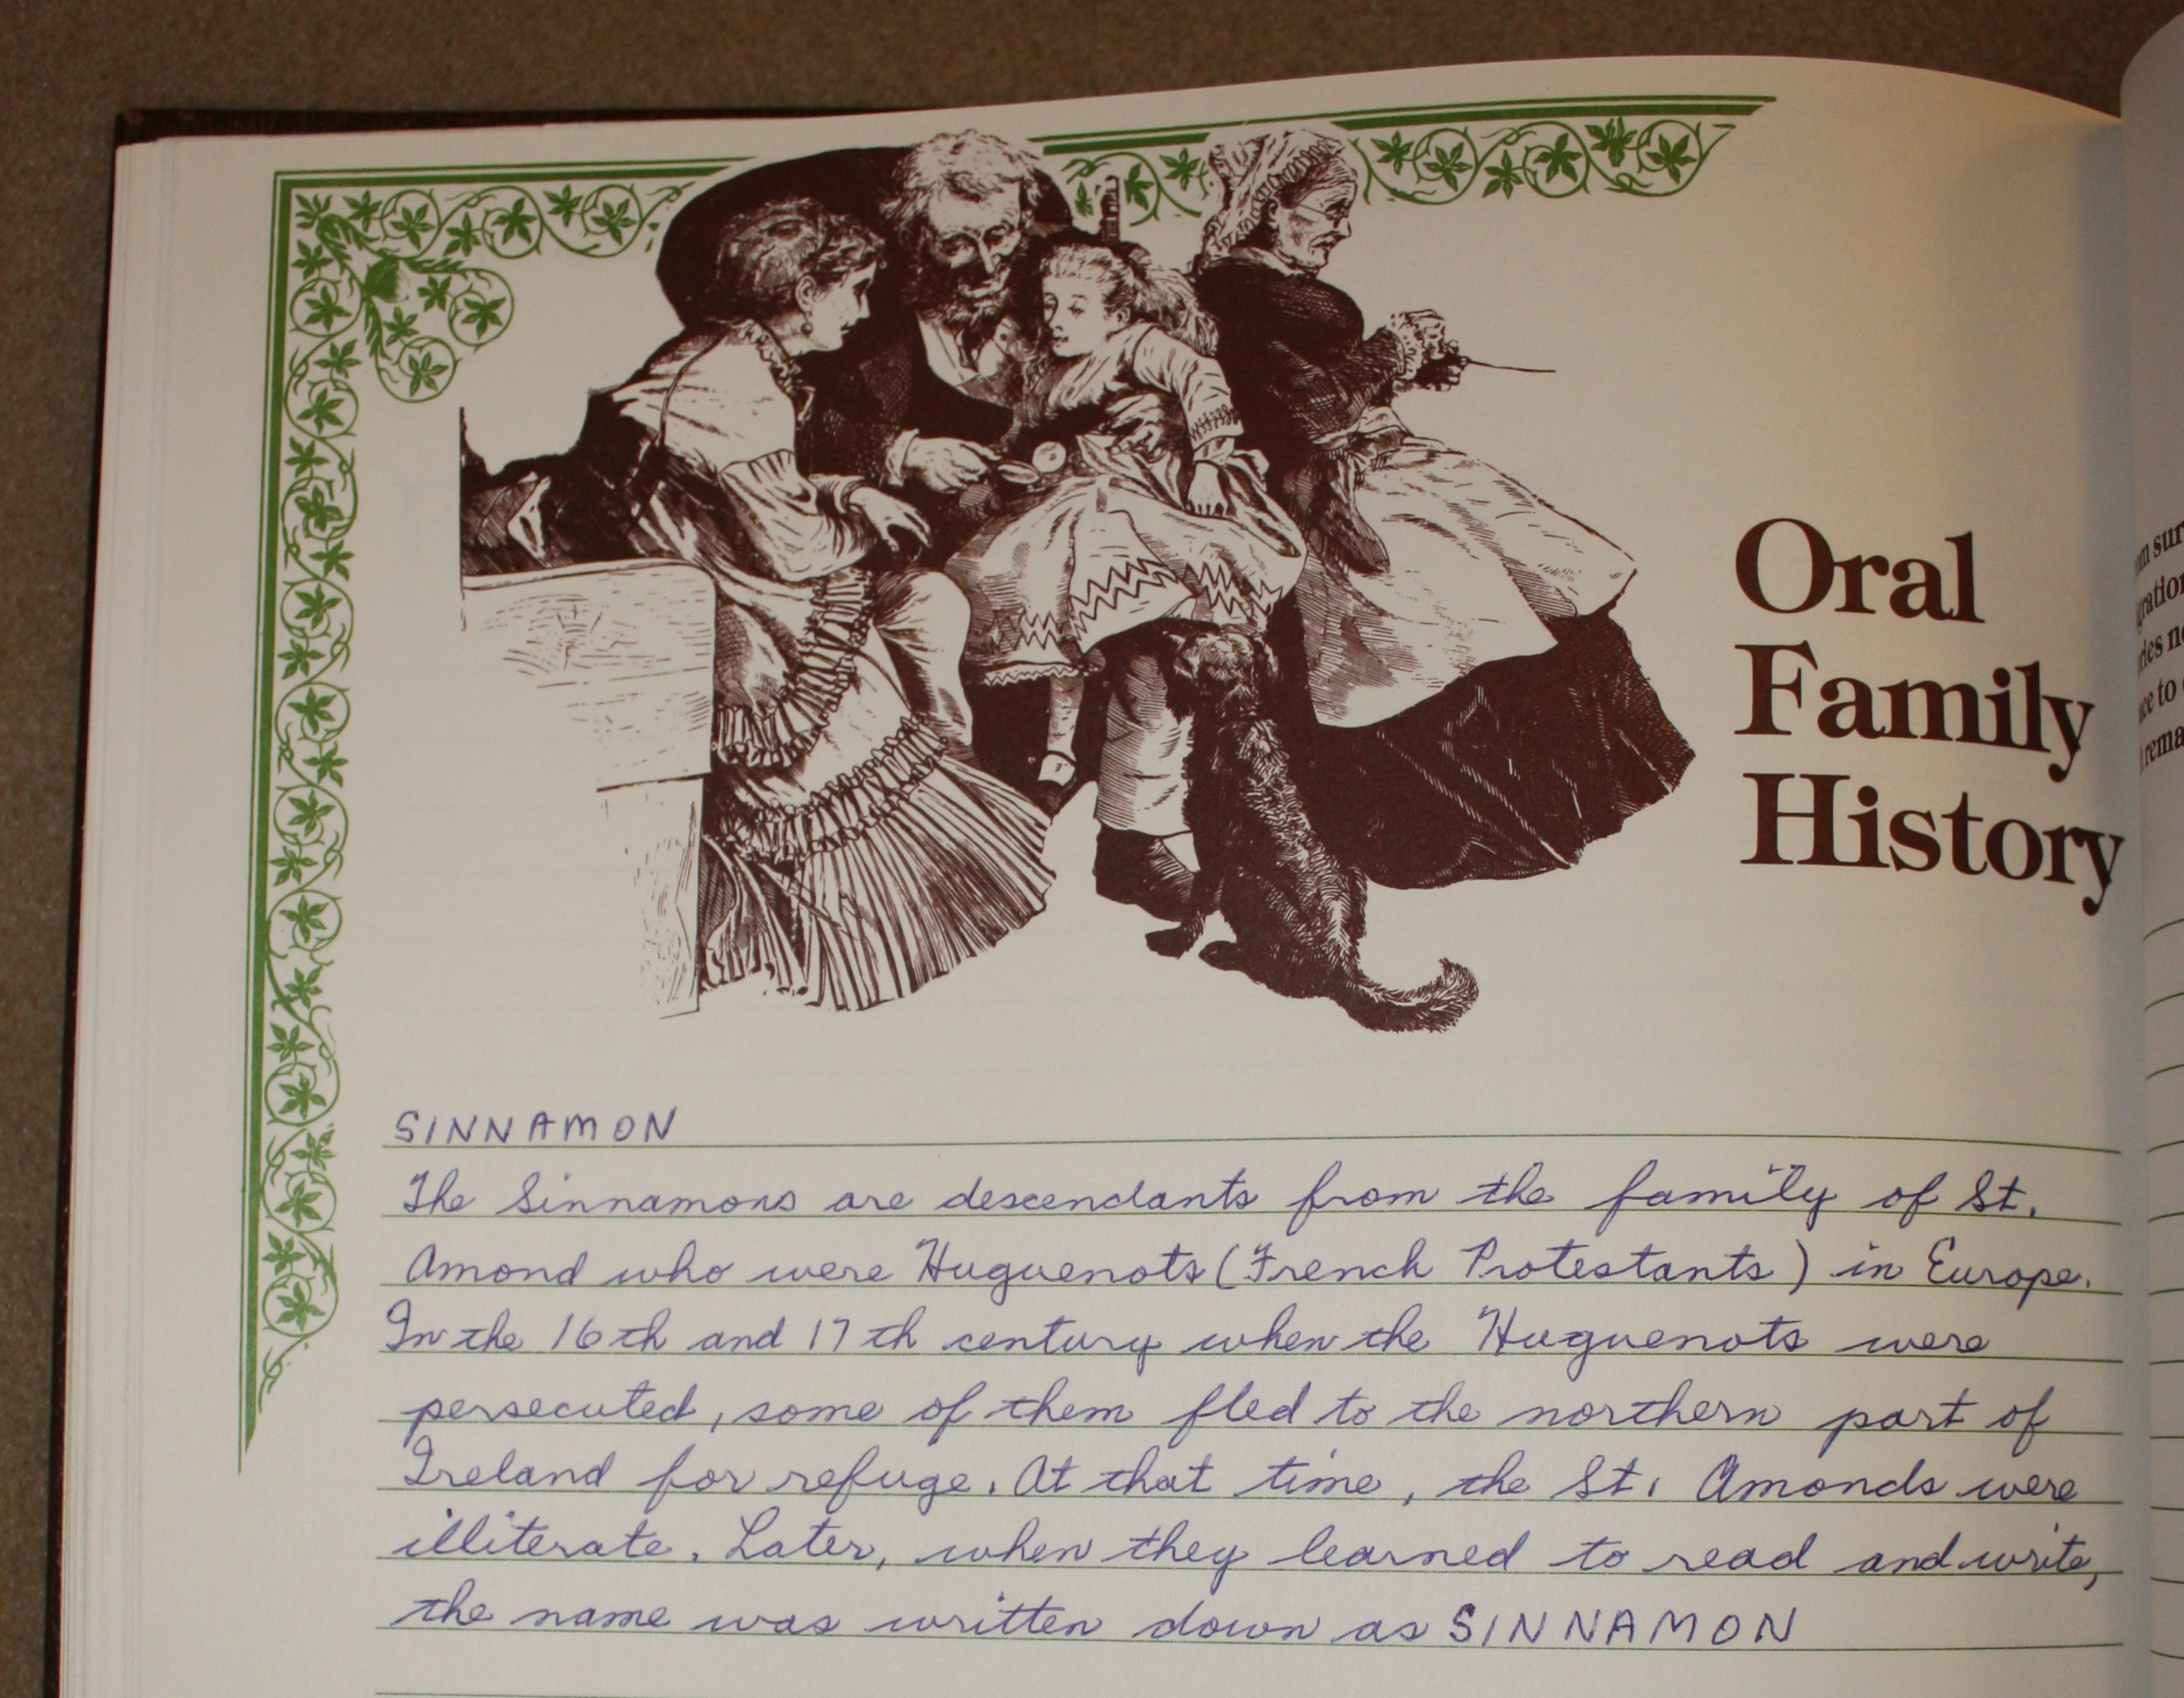 Oral
Family
History
SINNAMON
The Sinnamons are descendants from the family of St.
Amond who were Huguenots (French Protestants) in Europe.
In the 16th and 17th century when the Huguenots were
persecuted, some of them fled to the northern part of
Ireland for refuge. At that time, the St. Amonds were
illiterate. Later, when they learned to read and write,
the name was written down as SINNAMON